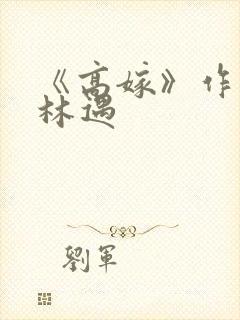 《高嫁》作
林遇
劉軍